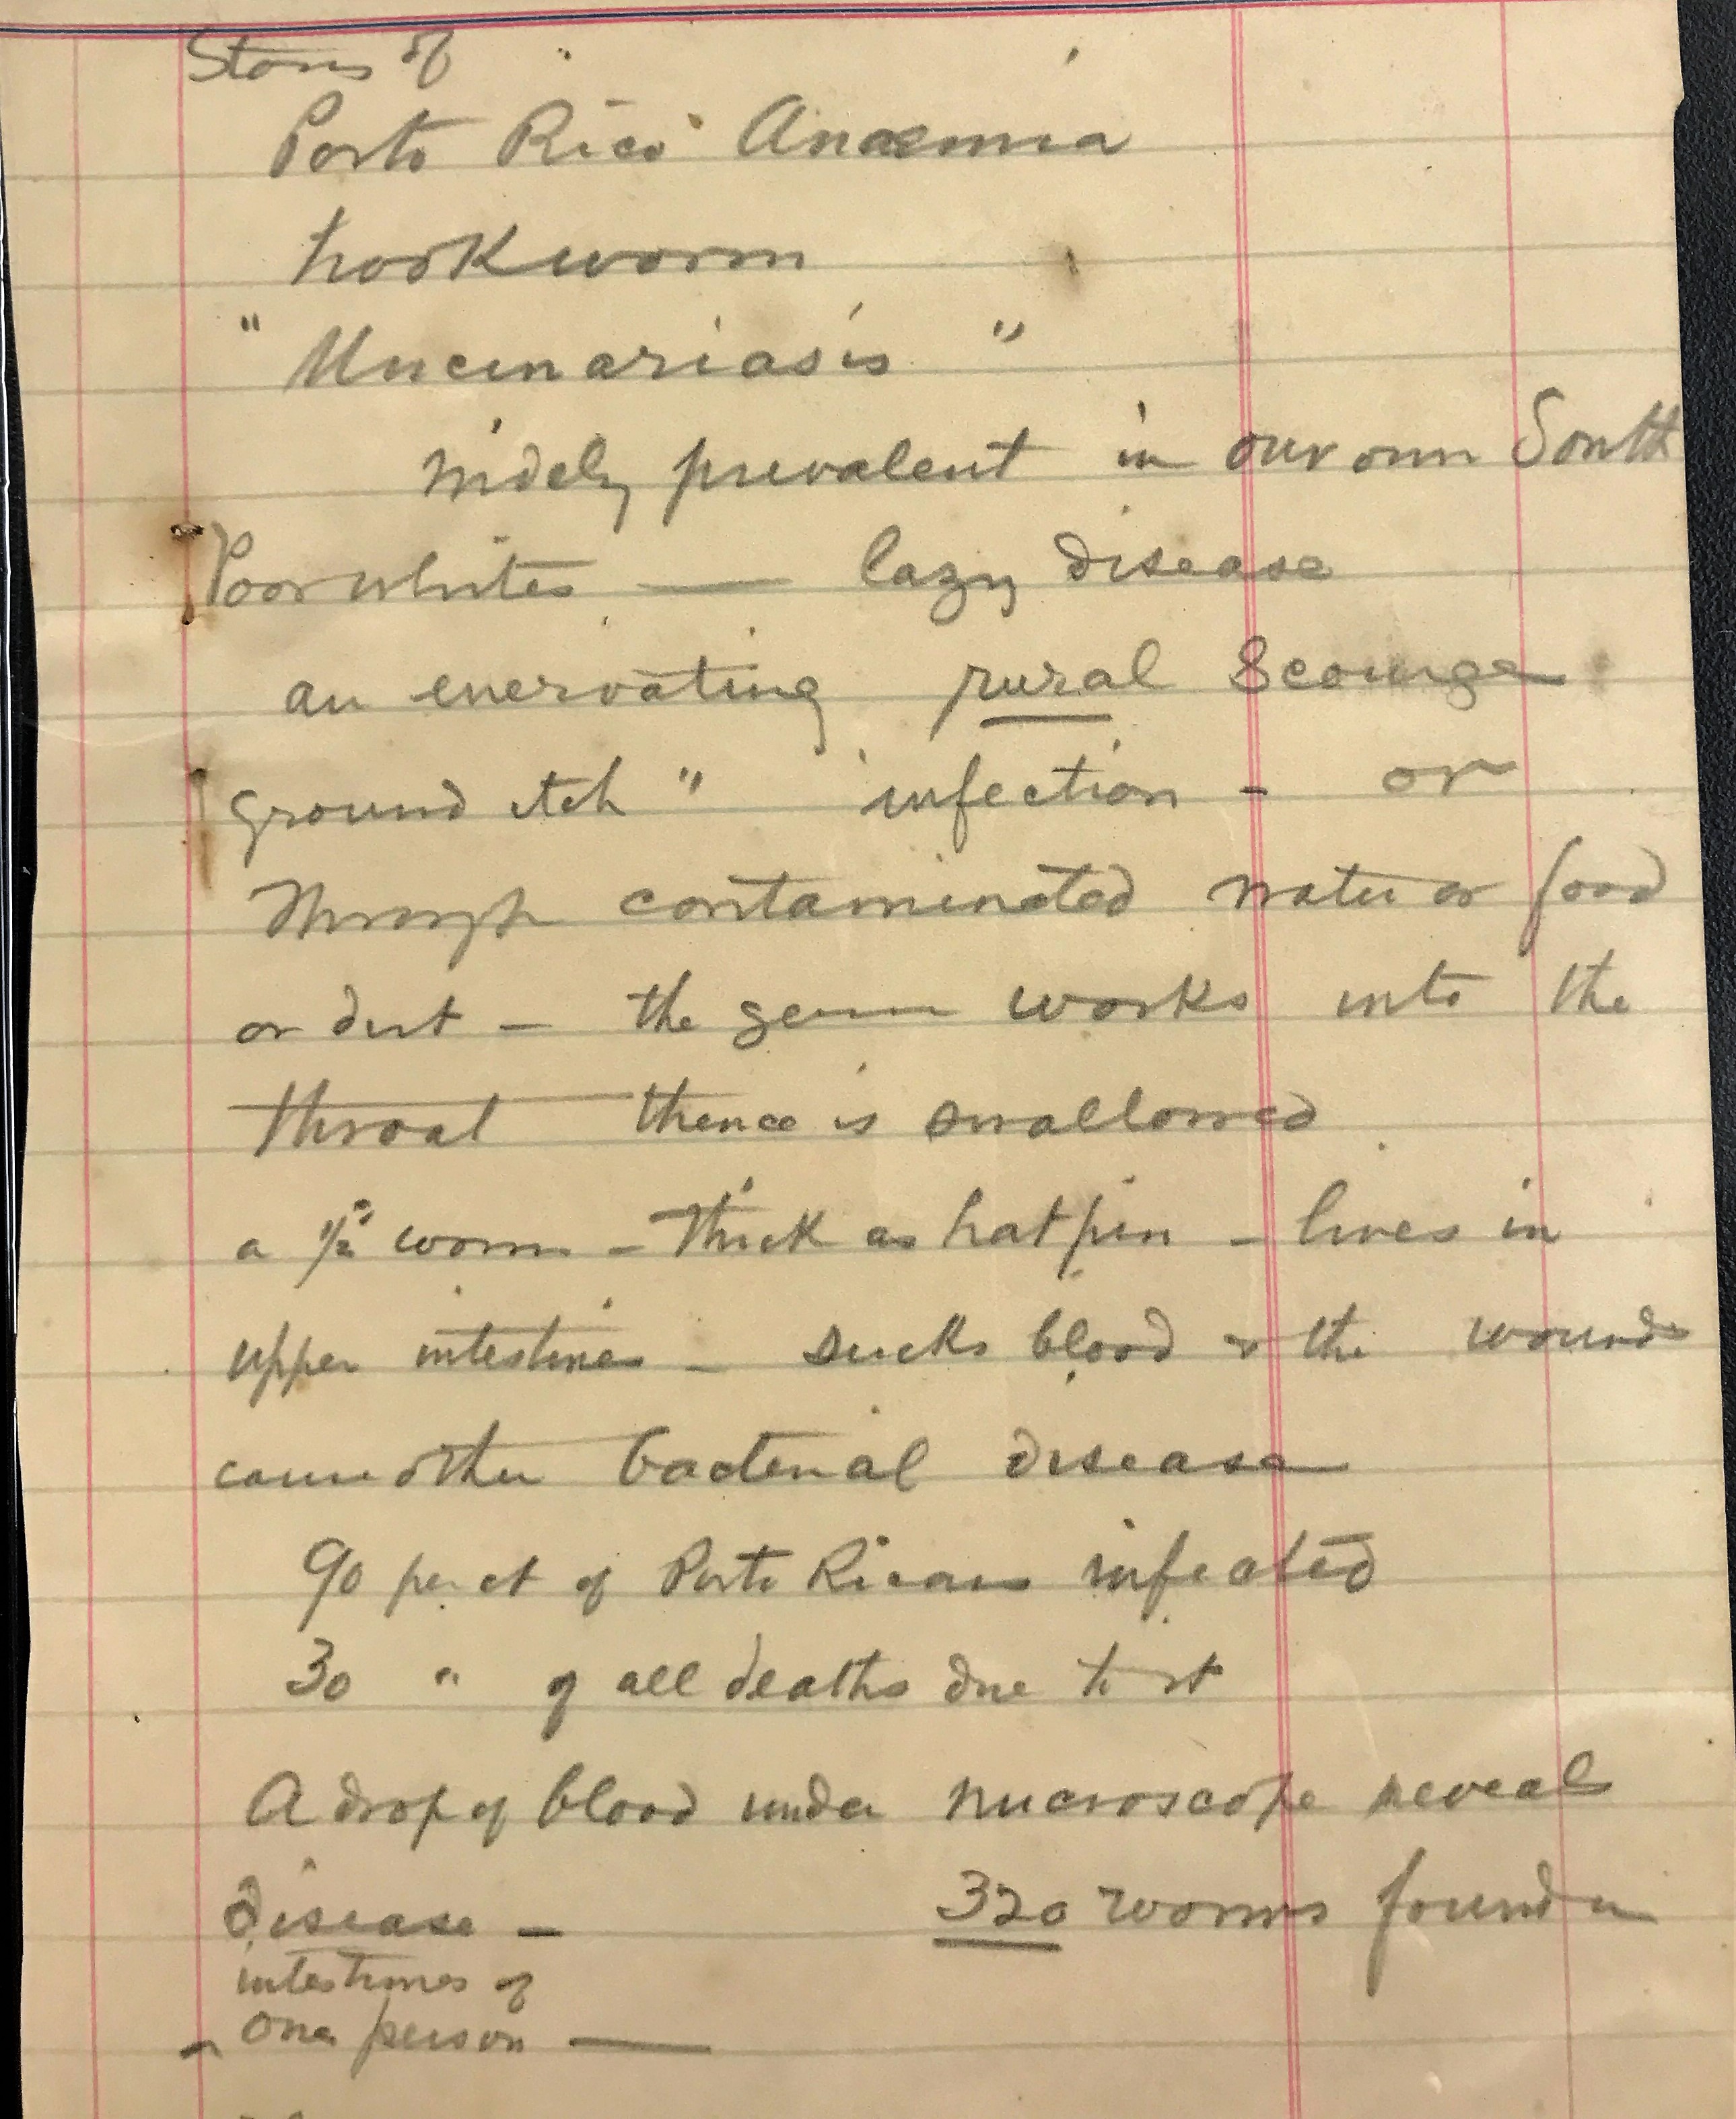 Story of
Porto Rico Anaemia
hookworm
"Uncinariasis"
widely prevalent in our own South
Poor whites — lazy disease
an enervating rural scourge
ground itch" infection - or
through contaminated water or food
or dirt - the germ works into the
throat thence is swallowed
a 1/2" worm - thick as hat pin - lives in
upper intestines - sucks blood & the wounds
cause other bacterial disease
90 per ct of Porto Ricans infected
30 " of all deaths due to it
A drop of blood under microscope reveals
disease - 320 worms found in
intestines of
one person —